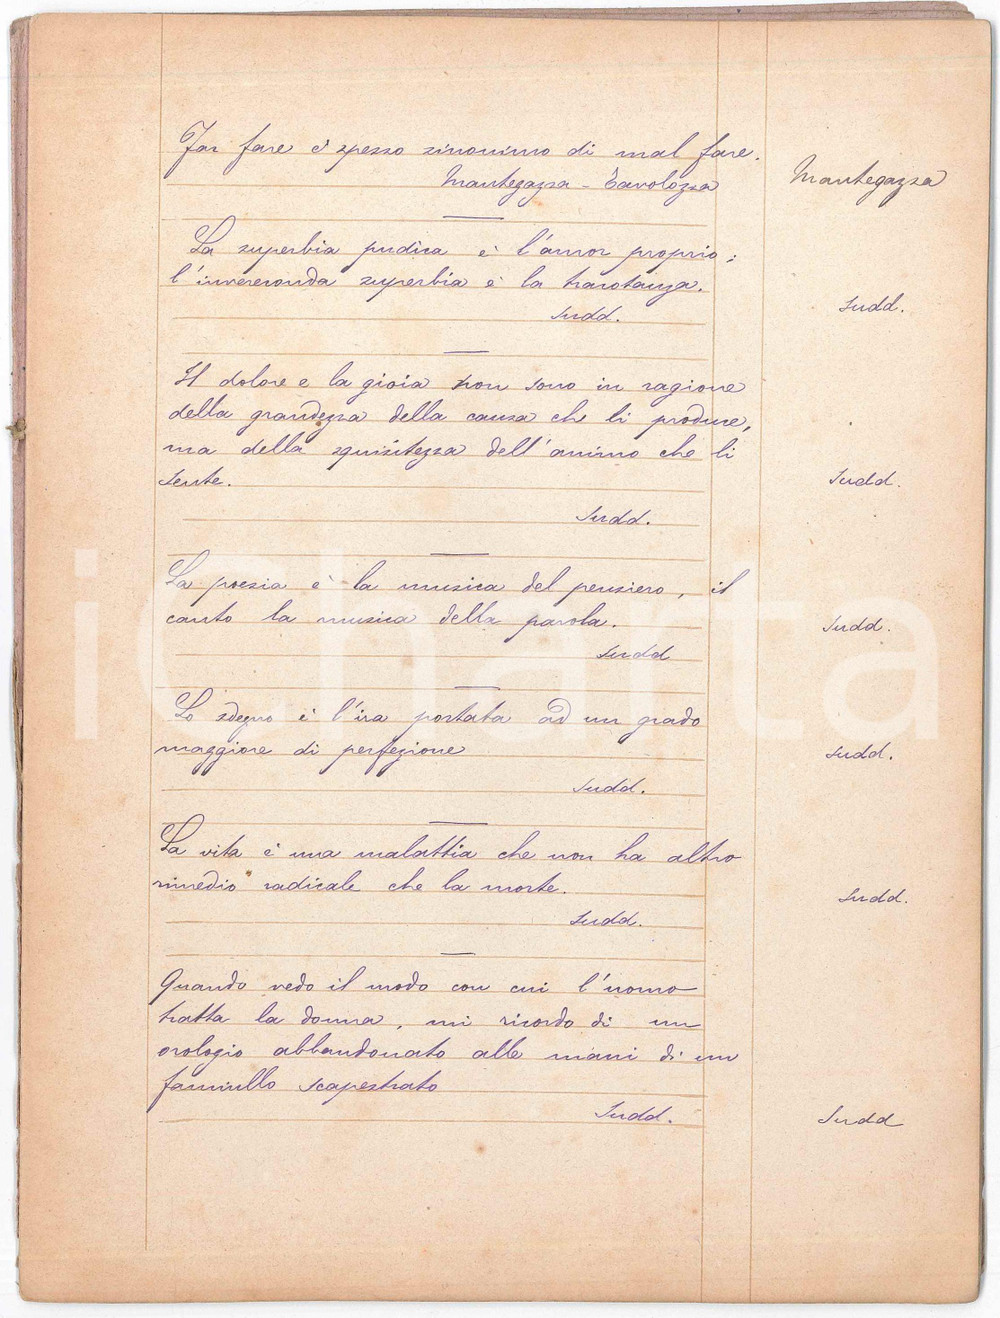 Far fare è spesso sinonimo di mal fare.
Mantegazza - Tavolozza
Mantegazza
La superbia pudica è l'amor proprio;
l'invereconda superbia è la
Sudd.
Sudd.
Il dolore e la gioia non sono in ragione
della grandezza della causa che li produce,
ma della squisitezza dell'animo che li
sente.
Sudd.
Sudd.
La poesia è la musica del pensiero, il
canto la musica della parola.
Sudd
Sudd.
Lo sdegno è l'ira portata ad un grado
maggiore di perfezione
Sudd.
Sudd.
La vita è una malattia che non ha altro
rimedio radicale che la morte.
Sudd.
Sudd.
Quando vedo il modo con cui l'uomo
tratta la donna, mi ricordo di un
orologio abbandonato alle mani di un
fanciullo scapestrato
Sudd.
Sudd
iCharta